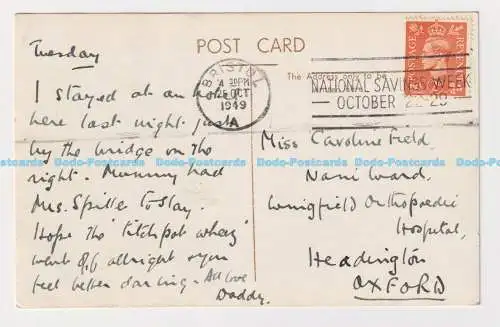 Tuesday
I stayed at an hotel
here last night just
by the bridge on the
right. Mummy had
Mrs. Spille to stay.
Hope the
went off allright & you
feel better darling. All love
Daddy.
POST CARD
The Address only to be
BRISTOL
4 30PM
25 OCT
1949
A
NATIONAL SAVINGS WEEK
OCTOBER 22-29
POSTAGE
REVENUE
Miss Caroline Field,
Nani Ward,
Wingfield Orthopaedic
Hospital,
Headington
OXFORD
Dodo-Postcards Dodo-Postcards Dodo-Postcards Dodo-Postcards